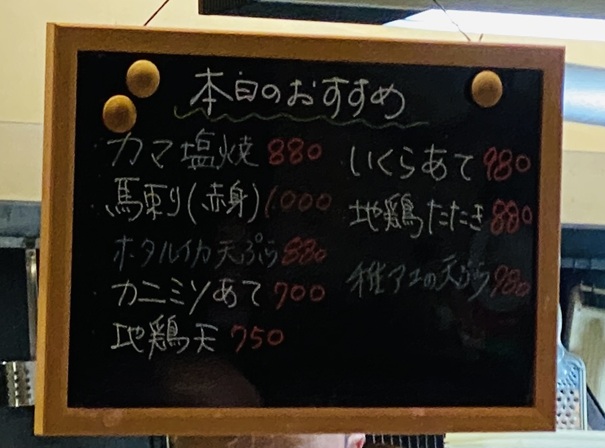 本日のおすすめ
カマ塩焼 880
馬刺り(赤身) 1000
ホタルイカ天ぷら 880
カニミソあて 700
地鶏天 750
いくらあて 980
地鶏たたき 880
稚アユの天ぷら 980